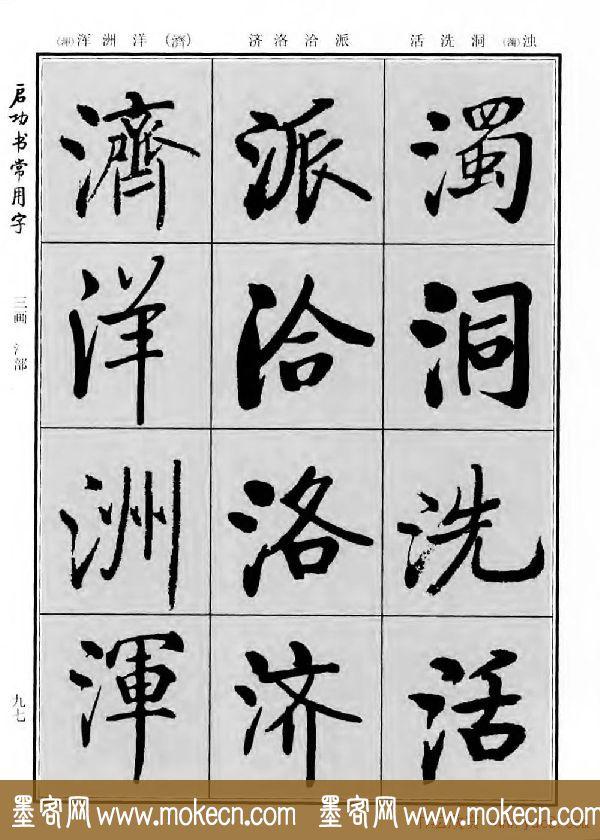 浊(濁)洞洗活
派洽洛济
(濟)洋洲浑(渾)
濁洞洗活
派洽洛济
濟洋洲渾
启功书常用字
三画 氵部
九七
墨客网 www.mokecn.com 墨客网 www.mokecn.com